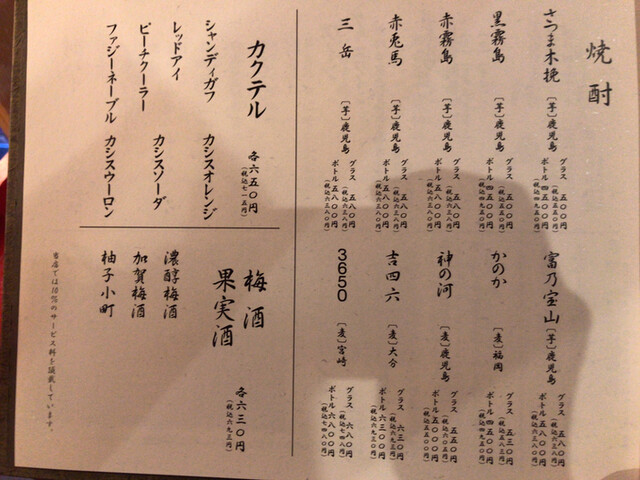 焼酎
さつま木挽 〔芋〕鹿児島 グラス 五〇〇円
(税込五五〇円)
ボトル 四五〇〇円
(税込四九五〇円)
黒霧島 〔芋〕鹿児島 グラス 五〇〇円
(税込五五〇円)
ボトル 四五〇〇円
(税込四九五〇円)
赤霧島 〔芋〕鹿児島 グラス 五八〇円
(税込六三八円)
ボトル 五八〇〇円
(税込六三八〇円)
赤兎馬 〔芋〕鹿児島 グラス 五八〇円
(税込六三八円)
ボトル 五八〇〇円
(税込六三八〇円)
三岳 〔芋〕鹿児島 グラス 五八〇円
(税込六三八円)
ボトル 五八〇〇円
(税込六三八〇円)
富乃宝山 〔芋〕鹿児島 グラス 五八〇円
(税込六三八円)
ボトル 五八〇〇円
(税込六三八〇円)
かのか 〔麦〕福岡 グラス 五三〇円
(税込五八三円)
ボトル 四五〇〇円
(税込四九五〇円)
神の河 〔麦〕鹿児島 グラス 五五〇円
ボトル 五〇〇〇円
(税込五五〇〇円)
吉四六 〔麦〕大分 グラス 六三〇円
(税込六九三円)
ボトル 六三〇〇円
(税込六九三〇円)
3650 〔麦〕宮崎 グラス 六八〇円
(税込七四八円)
ボトル 六八〇〇円
(税込七四八〇円)
カクテル 各六五〇円
(税込七一五円)
シャンディガフ カシスオレンジ
レッドアイ
カシスソーダ
ピーチクーラー
ファジーネーブル カシスウーロン
梅酒
果実酒 各六三〇円
(税込六九三円)
濃醇梅酒
加賀梅酒
柚子小町
当店では10%のサービス料を頂戴しています。